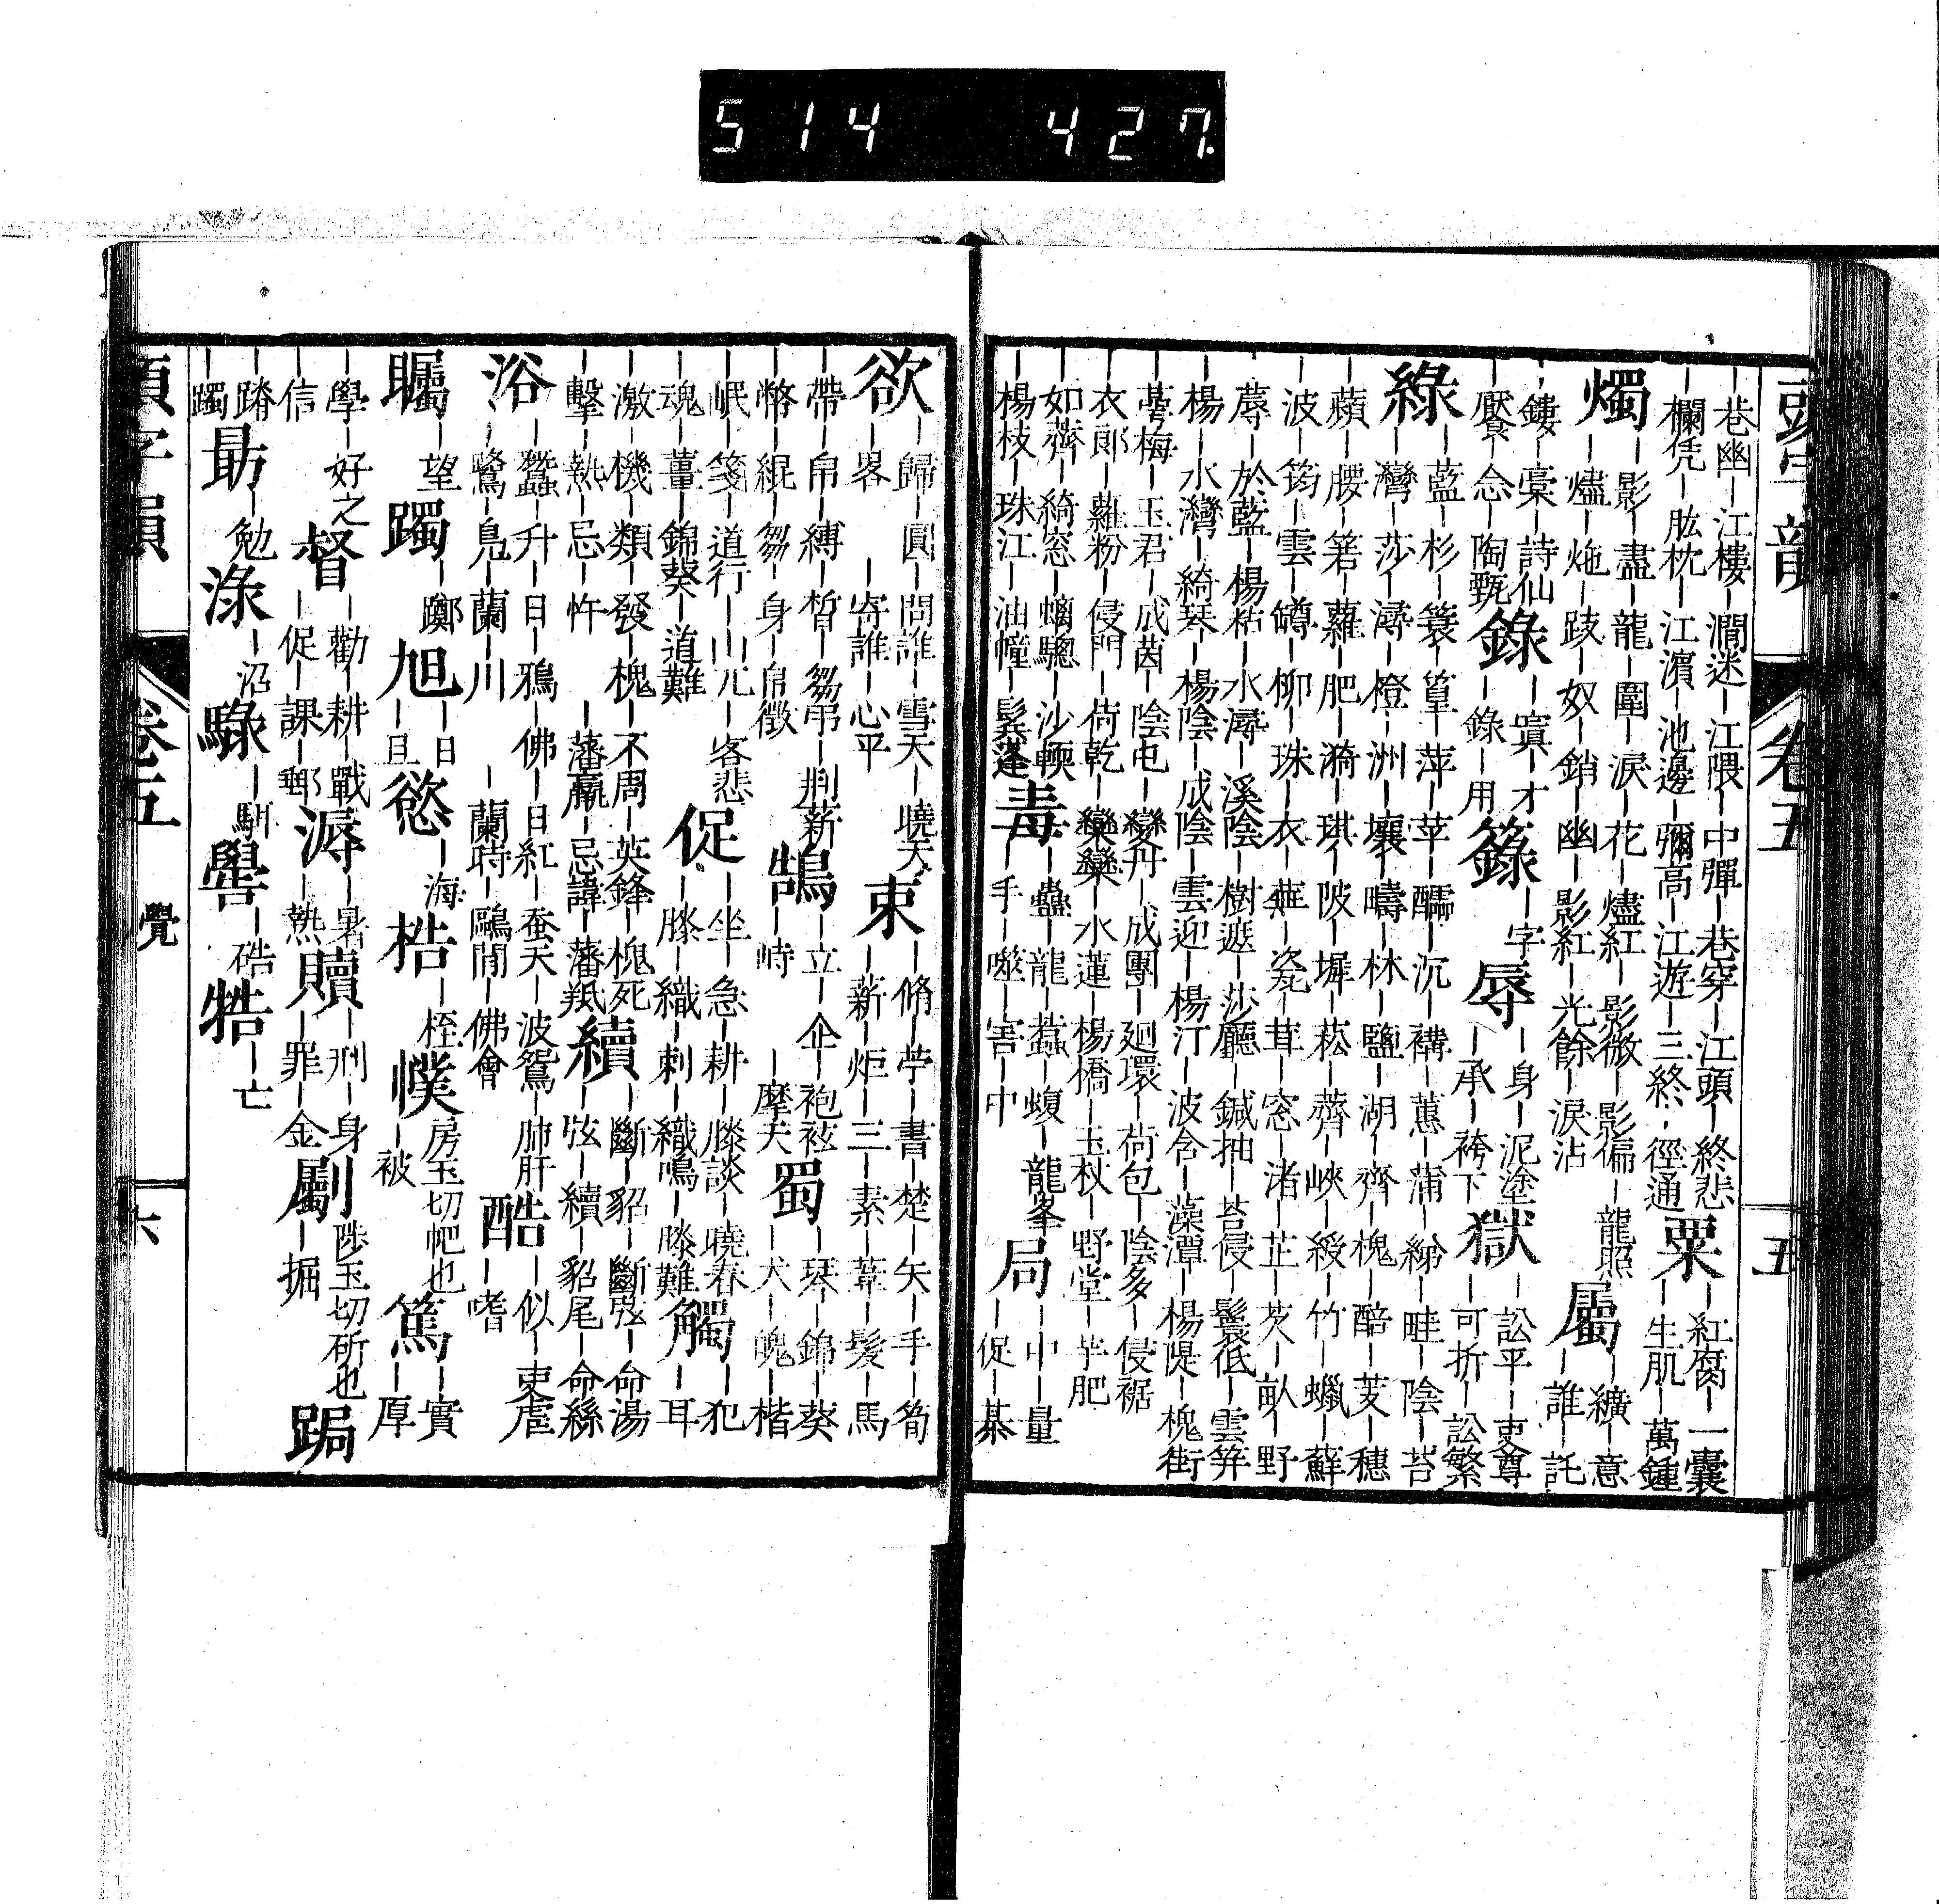 514 427
卷五 五
｜巷幽｜江樓｜澗迷｜江隈｜中彈｜巷穿｜江頭｜終悲 粟 ｜紅腐｜一囊
｜欄凭｜肱枕｜江濱｜池邊｜彌高｜江遊｜三終｜徑通 ｜生肌｜萬鍾
燭 ｜影｜盡｜龍｜圍｜淚｜花｜燼紅｜影微｜影偏｜龍照 屬 ｜纊｜意
｜燼｜炧｜跂｜奴｜銷｜幽｜影紅｜光餘｜淚沾 ｜誰｜託
｜鏤｜稾｜詩仙 錄 ｜寘｜才 籙 ｜字 辱 ｜身｜泥塗 獄 ｜訟平｜吏尊
｜饜｜念｜陶甄 ｜錄｜用 ｜承｜袴下 ｜可折｜訟繁
綠 ｜藍｜杉｜簑｜篁｜萍｜苹｜醽｜沉｜褠｜蕙｜蒲｜綸｜畦｜陰｜苔
｜灣｜莎｜潯｜橙｜洲｜壤｜疇｜林｜鹽｜湖｜齊｜槐｜醅｜芰｜穗
｜蘋｜腰｜箬｜蘿｜肥｜漪｜琪｜陂｜墀｜菘｜薺｜峽｜綬｜竹｜蠟｜蘇
｜波｜筠｜雲｜罇｜柳｜珠｜衣｜華｜瓷｜茸｜窓｜渚｜芷｜芡｜畝｜野
｜蓐｜於藍｜楊粘｜水潯｜溪陰｜樹遮｜莎廳｜鍼抽｜苔侵｜鬟低｜雲笄
｜楊｜水灣｜綺琴｜楊陰｜成陰｜雲迎｜楊汀｜波含｜藻潭｜楊隄｜槐街
｜萼梅｜玉君｜成茵｜陰屯｜孌丹｜成團｜廻環｜荷包｜陰多｜侵裾
｜衣郎｜蘿粉｜侵門｜荷乾｜欒欒｜水蓮｜楊橋｜玉杖｜野堂｜芋肥
｜如薺｜綺窓｜螭驄｜沙輭 毒 ｜蠱｜龍｜蠚｜蝮｜龍峯 局 ｜中｜量
｜楊枝｜珠江｜油幢｜鬢蓬 ｜手｜噬｜害｜中 ｜促｜棊
欲 ｜歸｜圓｜問誰｜雪天｜曉天 束 ｜脩｜苧｜書｜楚｜矢｜手｜筍
｜畧｜寄誰｜心平 ｜薪｜炬｜三｜素｜葦｜髮｜馬
｜帶｜帛｜縛｜皙｜芻帛｜荆薪 鵠 ｜立｜企｜袍袨 蜀 ｜琴｜錦｜葵
｜幣｜緄｜芻｜身｜帛徵 ｜峙｜摩天 ｜犬｜魄｜楷
｜岷｜箋｜道行｜山兀｜客悲 促 ｜坐｜急｜耕｜膝談｜曉春 觸 ｜犯
｜魂｜薑｜錦葵｜道難 ｜膝｜織｜刺｜織鳴｜膝難 ｜耳
｜激｜機｜類｜發｜槐｜不周｜英鋒｜槐死 續 ｜斷｜貂｜斷弦｜命湯
｜擊｜熱｜忌｜忤｜藩羸｜忌諱｜藩羝 ｜弦｜續｜貂尾｜命絲
浴 ｜蠶｜升｜日｜鴉｜佛｜日紅｜蚕天｜波鴛｜肺肝 酷 ｜似｜吏虐
｜鷺｜鳧｜蘭｜川｜蘭時｜鷗閒｜佛會 ｜嗜
矚 ｜望 躅 ｜躑 旭 ｜日｜旦 慾 ｜海 梏 ｜桎 幞 房玉切帊也｜被 篤 ｜實｜厚
｜學｜好之 督 ｜勸｜耕｜戰 溽 ｜暑 贖 ｜刑｜身 斸 陟玉切斫也 跼
｜信 ｜促｜課｜郵 ｜熱 ｜罪｜金 ｜掘
｜蹐｜躅 勗 ｜勉 淥 ｜沼 騄 ｜駬 嚳 ｜硞 牿 ｜亡
卷五 覺 六